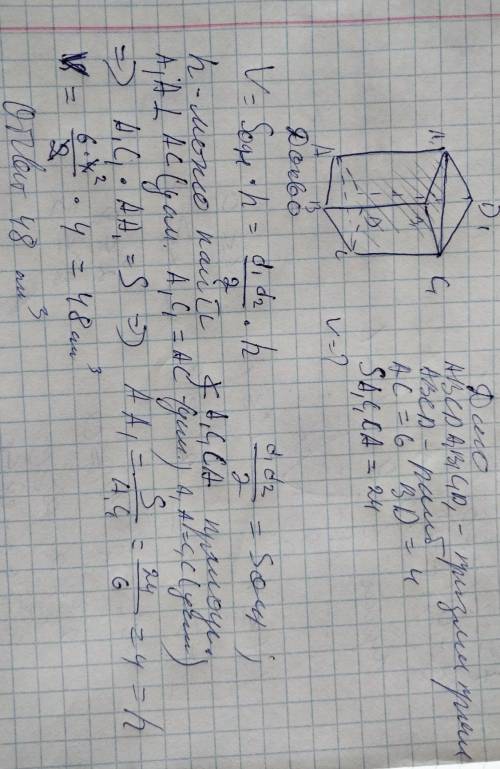 Дано
ABCDA₁B₁C₁D₁ - призма прям
ABCD - ромб
AC = 6 BD = 4
SA₁C₁CA = 24
V = ?
A₁ D₁ C₁
A B D C
V = Sосн · h = d₁d₂/2 · h
d₁d₂/2 = Sосн ;
h - можно найти A₁C₁CA прямоуг.
A₁A ⊥ AC (усл.) A₁C₁ = AC (усл.) A₁A = C₁C (усл.)
=> A₁C₁ · AA₁ = S => AA₁ = S/A₁C₁ = 24/6 = 4 = h
V = 6·4/2 · 4 = 48 см³
Ответ 48 см³